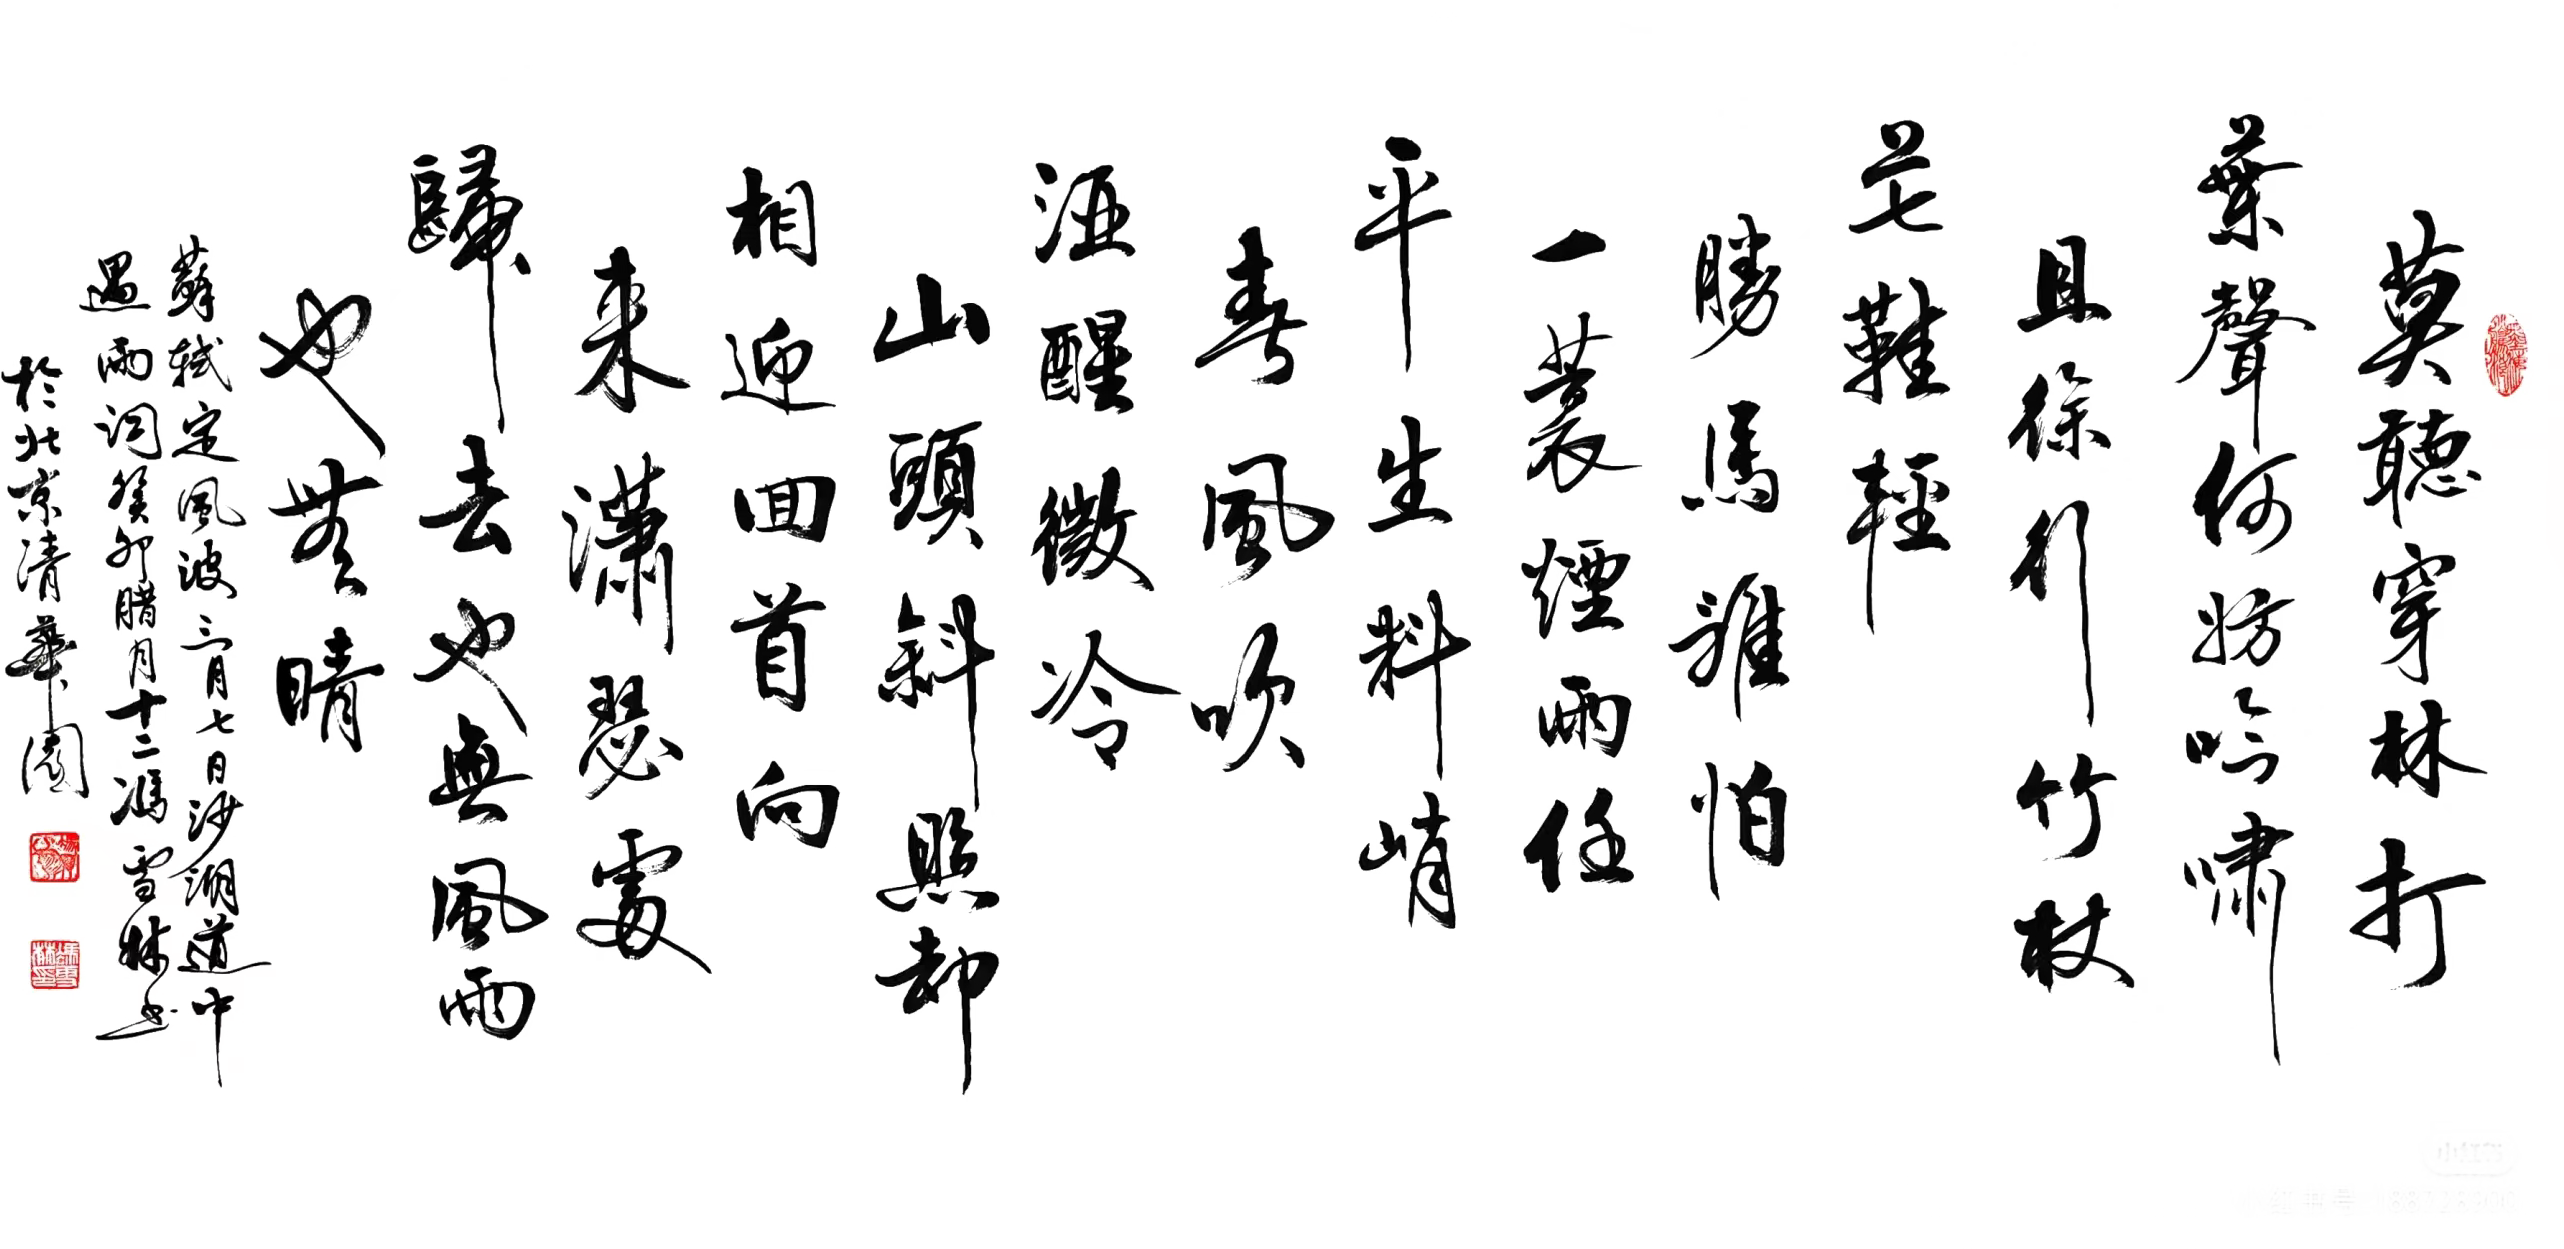 莫聽穿林打
葉聲何妨吟嘯
且徐行竹杖
芒鞋輕
勝馬誰怕
一蓑煙雨任
平生料峭
春風吹
酒醒微冷
山頭斜照却
相迎回首向
来瀟瑟處
歸去也無風雨
也無晴
蘇軾定風波三月七日沙湖道中
遇雨词癸卯腊月十二馮雪林书
於北京清華園
小红书